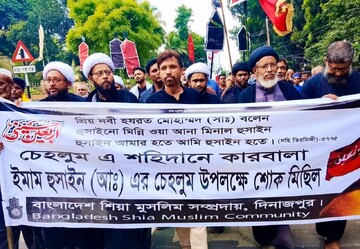 প্রিয় নবী হযরত মোহাম্মদ (সাঃ) বলেন
হুসাইনো মিন্নি ওয়া আনা মিনাল হুসাইন
হুসাইন আমার হতে আমি হুসাইন হতে। (সহি তিরমিজী-৩৭৭৫)
চেহলুম এ শহিদানে কারবালা
ইমাম হুসাইন (আঃ) এর চেহলুম উপলক্ষে শোক মিছিল
বাংলাদেশ শিয়া মুসলিম সম্প্রদায়, দিনাজপুর।
Bangladesh Shia Muslim Community